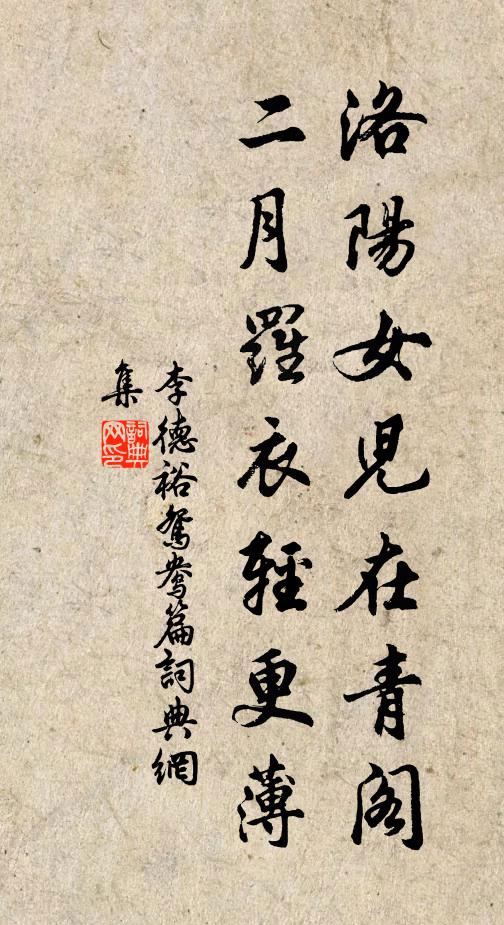 洛陽女兒在青阁
二月羅衣輕更薄
李德裕鴛鴦篇詞典網
集
詞典
网印